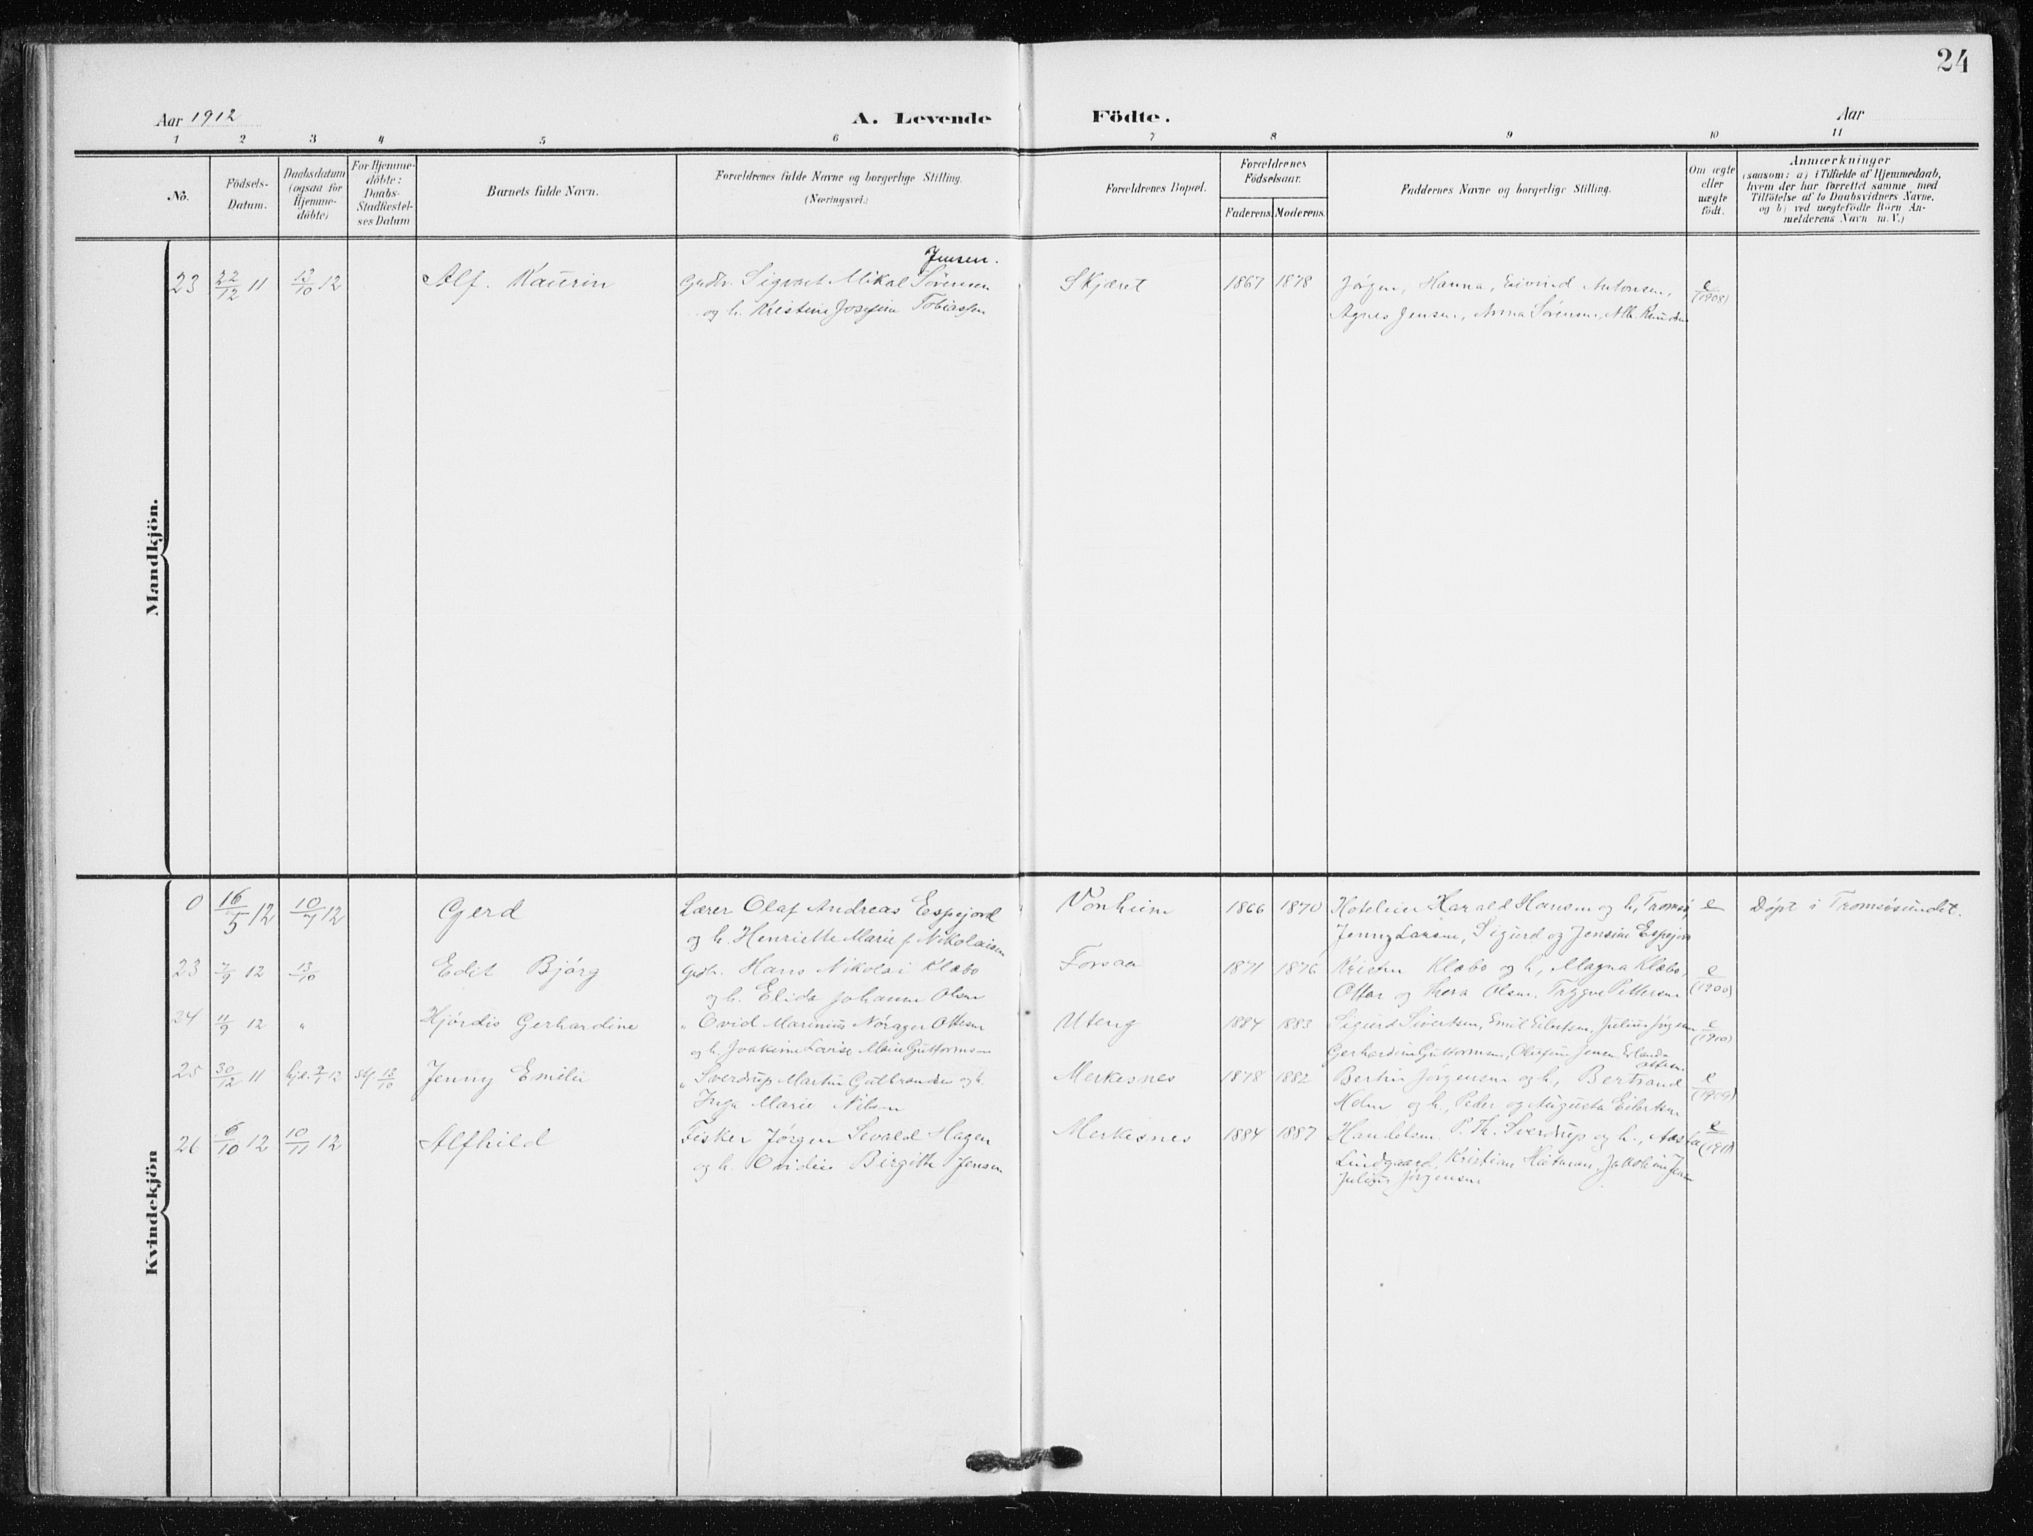 24
Aar 1912 A. Levende Födte. Aar
1 2 3 4 5 6 7 8 9 10 11
No. Födsels-Datum. Daabsdatum (ogsaa for Hjemme-döbte) For Hjemme-döbte: Daabs-Stadfæstel-ses Datum Barnets fulde Navn. Forældrenes fulde Navne og borgerlige Stilling. (Næringsvei.) Forældrenes Bopæl. Forældrenes Födselsaar. Faderens. Moderens. Faddernes Navne og borgerlige Stilling. Om ægte eller uægte födt. Anmærkninger (saasom: a) i Tilfælde af Hjemmedaab, hvem der har forrettet samme med Tilföielse af to Daabsvidners Navne, og b) ved uægtefödte Börn An-melderens Navn m. V.)
Mandkjön.
Jensen.
23 22/12 11 13/10 12 Alf. Kaurin Gbr. Sigvart Mikal Sørensen Skjæret 1867 1878 Jørgen, Hanna, Eivind Antonsen, e
og h. Kristine Josefine Tobiassen Agnes Jensen, Anna Sørensen, Alb. Knudsen (1908)
Kvindekjön
0 16/5 12 10/7 12 Gerd Lærer Olaf Andreas Espejord Vonheim 1866 1870 Hoteleier Harald Hansen og h, Tromsö, e Döpt i Tromsösundet.
og h. Henriette Marie f. Nikolaisen Jenny Larsen, Sigurd og Jensine Espejord
23 7/9 12 13/10 Edit Bjórg Gbr. Hans Nikolai Klæbo Forsaa 1871 1876 Kristen Klæbo og h, Magna Klæbo, e
og h. Elida Johanna Olsen Ottar og Thora Olsen, Trygve Pettersen (1900)
24 11/9 12 " Hjørdis Gerhardine " Ovid Marinius Nórager Ottesen Uteng 1884 1883 Sigurd Sivertsen, Emil Eilertsen, Julius Jørgensen e
og h. Joakime Lovise Marie Guttormsen Gerhardine Guttormsen, Olufine Jensen, Erlanda Ottesen (1910)
25 30/12 11 hj. 7/1 12 st. 13/10 Jenny Emilie " Sverdrup Martin Gulbrandsen og h. Merkesnes 1878 1882 Bertin Jørgensen og h, Bertrand e
Inga Marie Nilsen Holm og h, Peder og Augusta Eilertsen (1909)
26 6/10 12 10/11 12 Alfhild Fisker Jørgen Sevald Hagen Merkesnes 1884 1887 Handelsm. P. Th. Sverdrup og h., Aasta e
og h. Ovidie Birgitte Jensen Lindgaard, Kristian Heitman, Jakobine Jensen (1911)
Julius Jørgensen